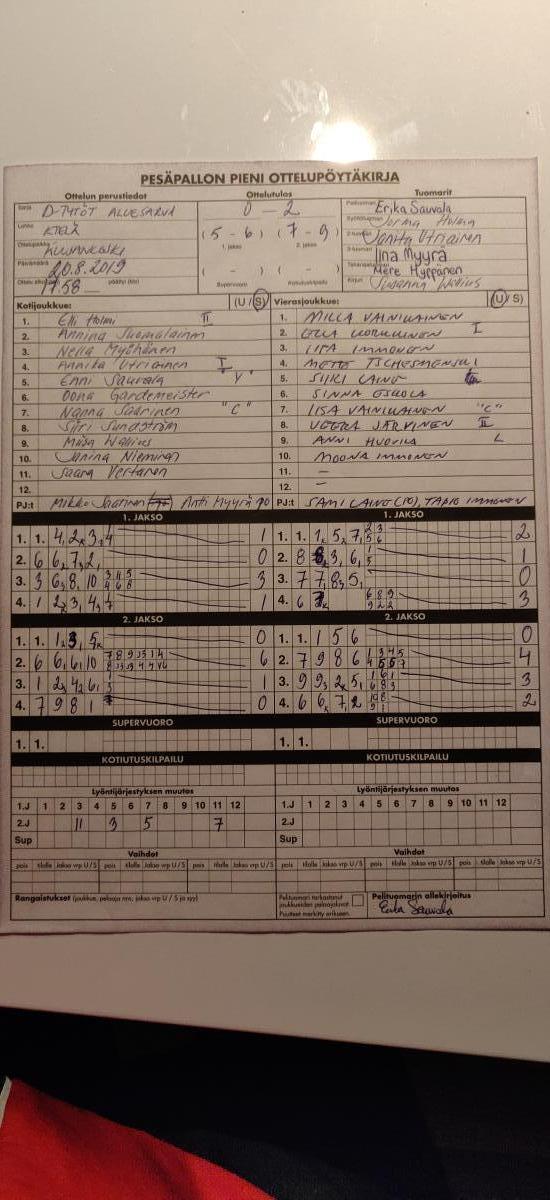 PESÄPALLON PIENI OTTELUPÖYTÄKIRJA
Ottelun perustiedot Ottelutulos Tuomarit
Sarja D-TYTÖT ALUESARJA 0 - 2 Pelituomari Erika Sauvala
Lohko (5 - 6) (7 - 9) Syöttötuomari Jorma Holma
1. jakso 2. jakso 2-tuomari Janita Utriainen
Ottelupaikka KUUSANKOSKI 3-tuomari Iina Myyrä
Päivämäärä 20.8.2019 ( - ) ( - ) Takarajatuomari Mere Hyppänen
Ottelu alkoi 17.58 päättyi (klo) Supervuoro Kotiutuskilpailu Kirjuri Susanna Wallius
Kotijoukkue: (U / S) Vierasjoukkue: (U / S)
1. Elli Holmi II 1. MILLA VAINIKAINEN
2. Annina Suomalainen 2. I
3. Nella Myöhänen 3. IITA IMMONEN
4. Annika Utriainen I 4. METTE TSCHESMENSKI
5. Enni Sauvala "V" 5. SIIRI LAINE
6. Oona Gardemeister 6. SINNA ESKOLA
7. Nanna Saarinen "C" 7. IISA VAINIKAINEN "C"
8. Siiri Sundström 8. VEERA JÄRVINEN II
9. Miisa Wallius 9. ANNI HUOVILA L
10. Janina Nieminen 10. MOONA IMMONEN
11. Saara Vertanen 11. –
12. 12. –
PJ:t Mikko Saarinen Anti Myyrä PJ:t SAMI LAINE TAPIO IMMONEN
1. JAKSO 1. JAKSO
1. 1. 4, 2, 3, 4 1 1. 1. 1, 5, 7, 2 3 5 6 2
2. 6 6, 7, 2, 0 2. 8 8, 3, 6, 1 5 1
3. 3 6, 8, 10 3 4 5 4 6 8 3 3. 7 7, 8, 5, 0
4. 1 2, 3, 4, 1 4. 6 6 8 9 9 2 2 3
2. JAKSO 2. JAKSO
1. 1. 1, 3, 5, 0 1. 1. 1 5 6 0
2. 6 6, 6, 10 6 2. 7 9 8 6 1 3 4 5 4
3. 1 2, 4, 6, 1 3. 9 9, 2, 5, 1 6 1 6 8 3 3
4. 7 9 8 1 0 4. 6 6, 7, 2 2
SUPERVUORO SUPERVUORO
1. 1. 1. 1.
KOTIUTUSKILPAILU KOTIUTUSKILPAILU
Lyöntijärjestyksen muutos Lyöntijärjestyksen muutos
1.J 1 2 3 4 5 6 7 8 9 10 11 12 1.J 1 2 3 4 5 6 7 8 9 10 11 12
2.J 11 3 5 7 2.J
Sup Sup
Vaihdot Vaihdot
pois tilalle Jakso vrp U / S pois tilalle Jakso vrp U / S pois tilalle Jakso vrp U / S pois tilalle Jakso vrp U / S
Rangaistukset (joukkue, pelaaja nro, jakso vrp U / S ja syy) Pelituomari tarkastanut joukkueiden pelaajaluvat Pelituomarin allekirjoitus
Puutteet merkitty erikseen. Erika Sauvala